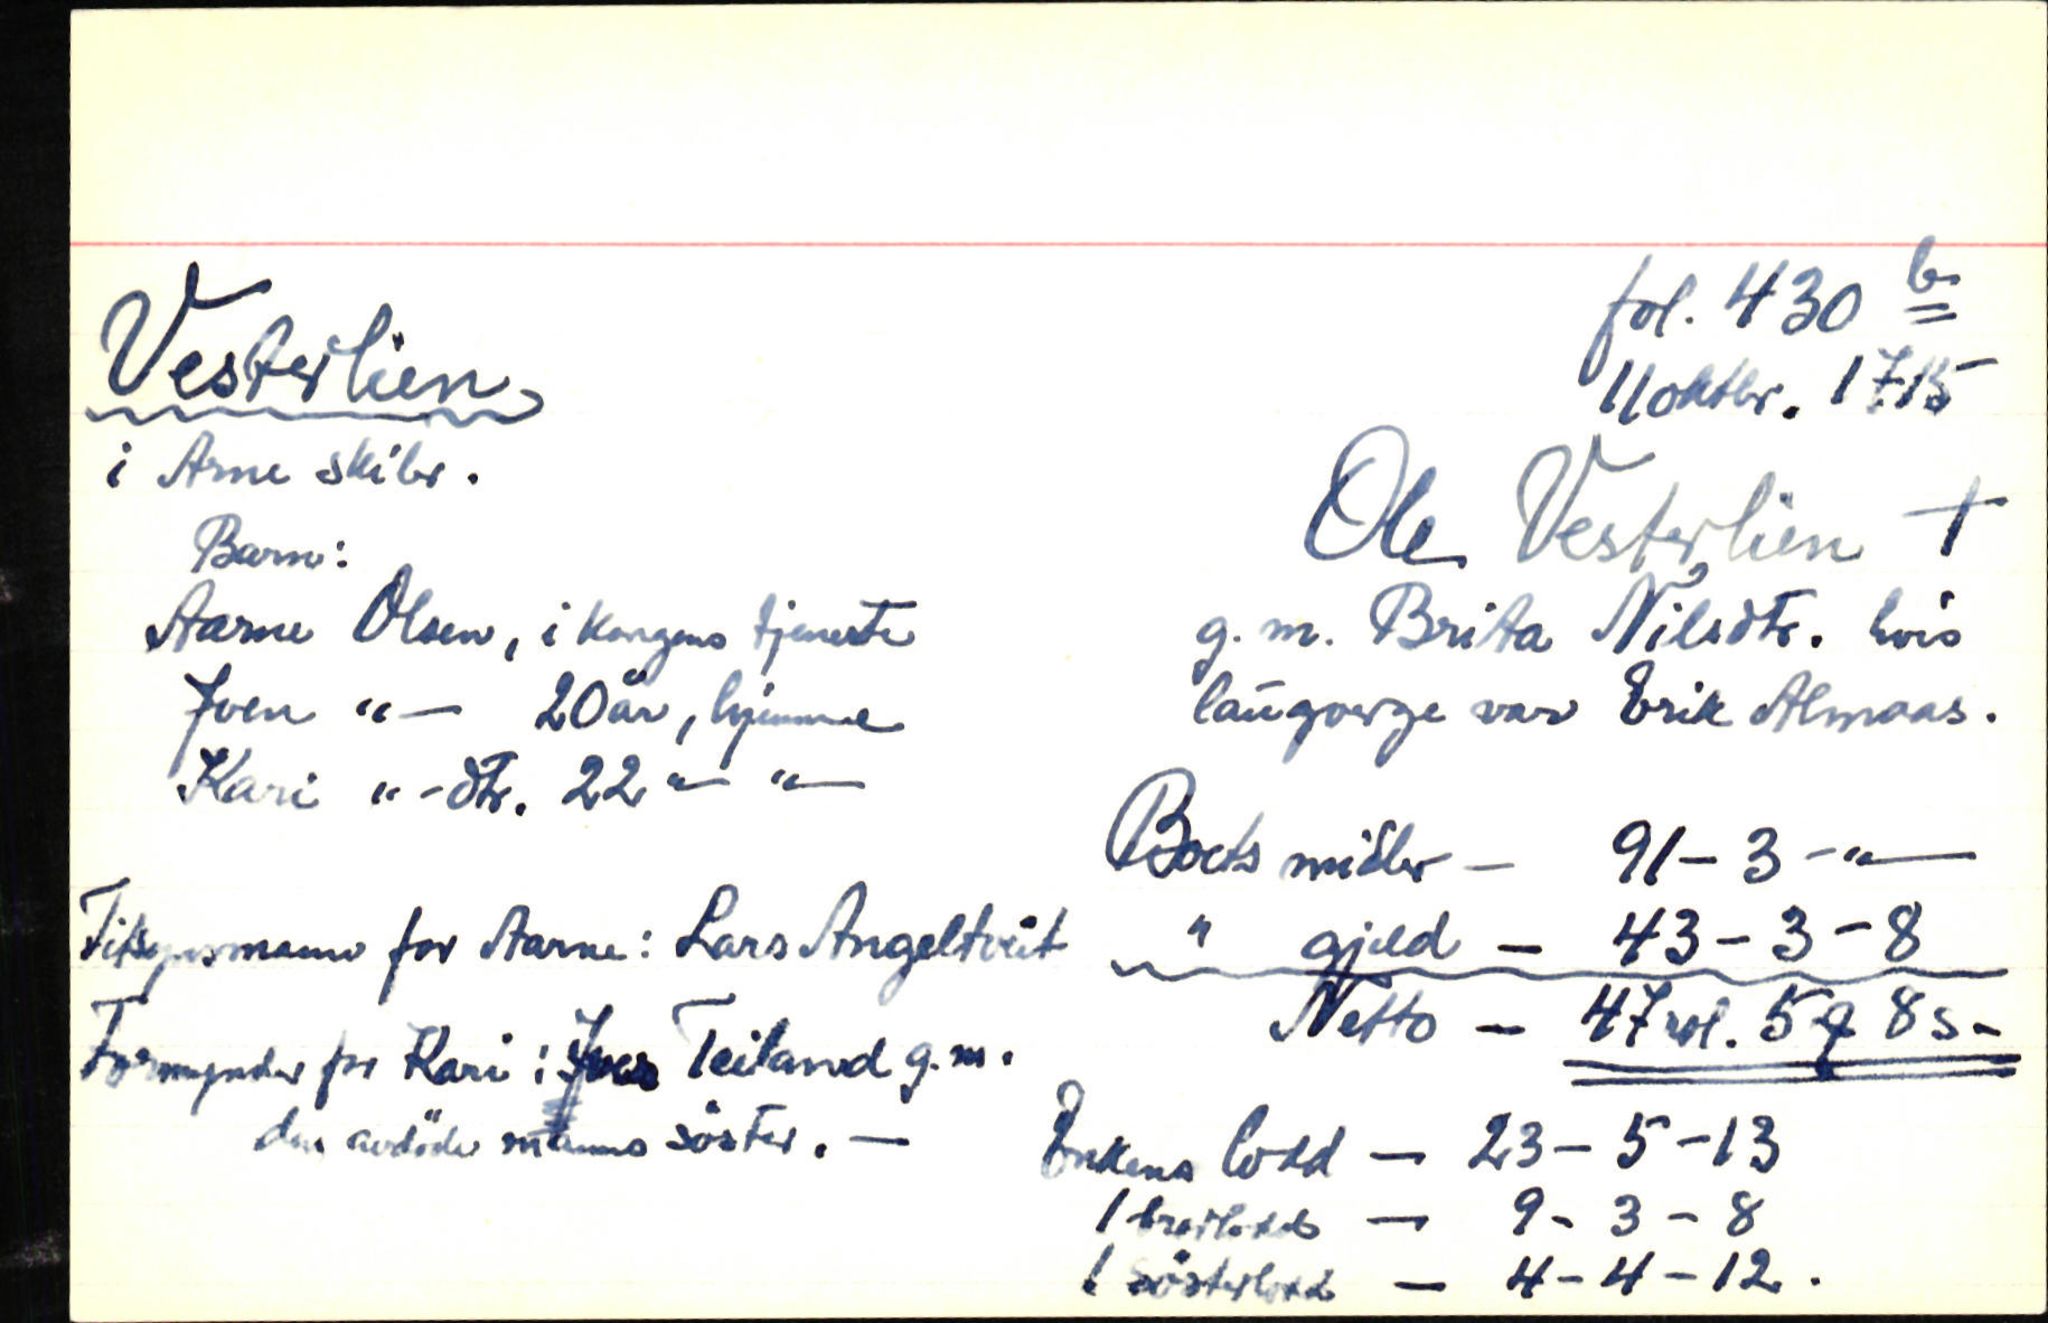 Vesterlien
i Arne skibr.
Barn:
Aarne Olsen, i kongens tjeneste
Iven "— 20 år, hjemme
Kari "-dtr. 22 "— "—
Tilsynsmann for Aarne: Lars Angeltveit
Formynder for Kari: Iver Teiland g.m.
den avdöde manns söster. —
fol. 430 b
11 oktbr. 1715
Ole Vesterlien †
g. m. Brita Nilsdtr. hvis
laugverge var Erik Almaas.
Boets midler — 91 - 3 - "—
" gjeld — 43 - 3 - 8
Netto — 47 rd. 5 8 s -
Enkens lodd — 23 - 5 - 13
1 brorlodd — 9 - 3 - 8
1 sösterlodd — 4 - 4 - 12.